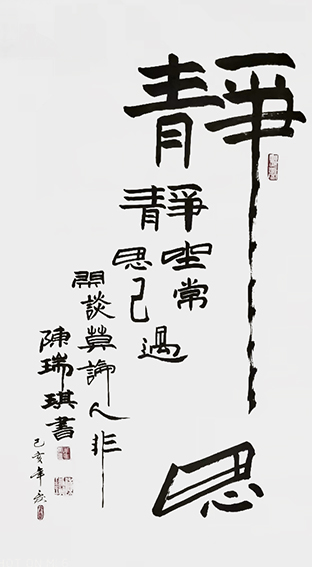 靜思
靜坐常思己過
閑談莫論人非
陳瑞琪書
己亥年秋